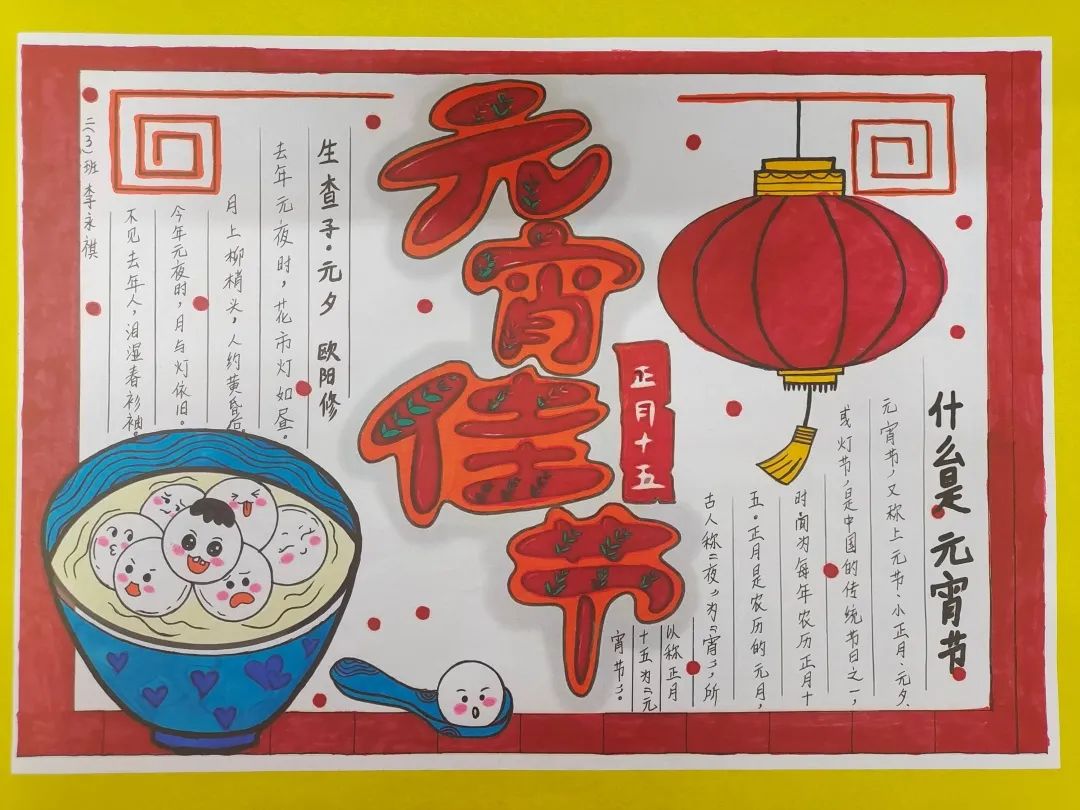 元宵佳节
正月十五
什么是元宵节
元宵节，又称上元节、小正月、元夕、
或灯节，是中国的传统节日之一，
时间为每年农历正月十
五。正月是农历的元月，
古人称“夜”为“宵”，所
以称正月
十五为“元
宵节”。
生查子·元夕 欧阳修
去年元夜时，花市灯如昼。
月上柳梢头，人约黄昏后。
今年元夜时，月与灯依旧。
不见去年人，泪湿春衫袖。
二(3)班 李永祺